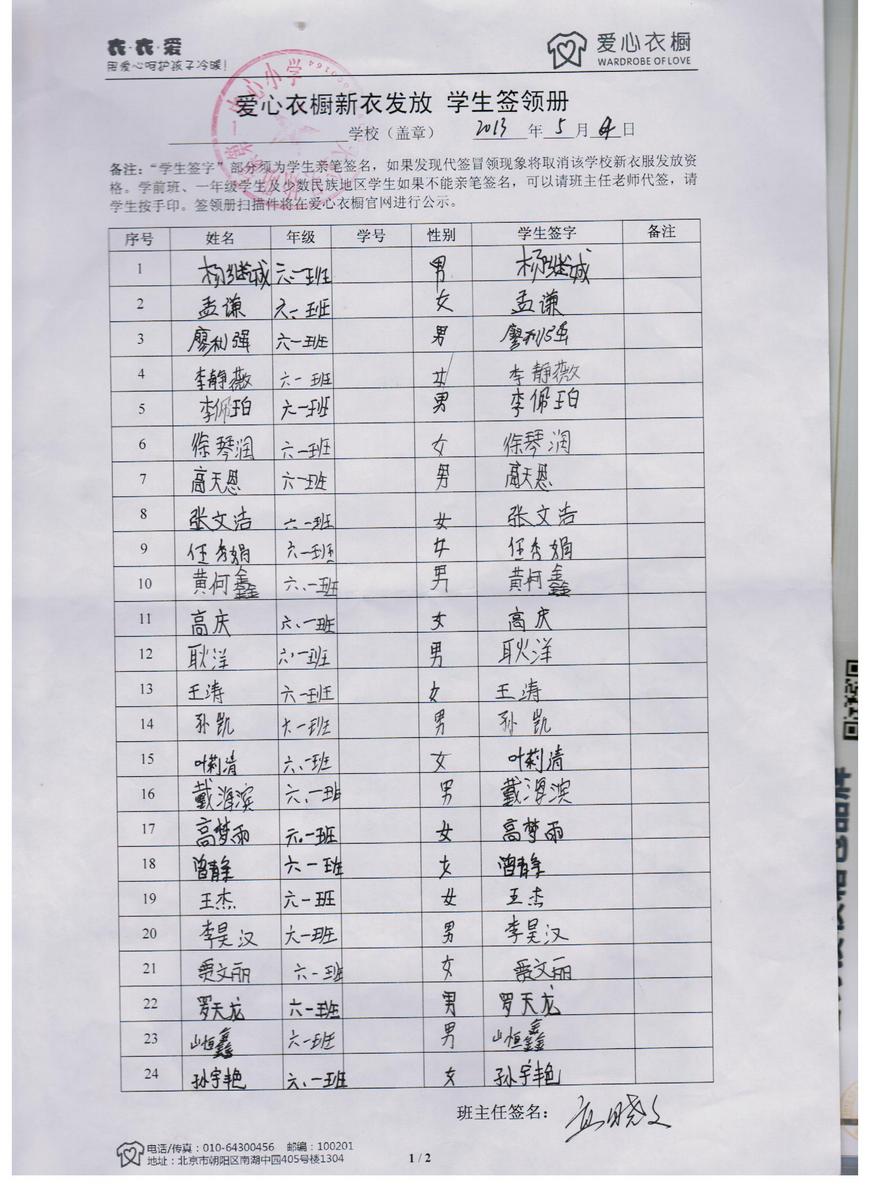 衣·衣·爱
用爱心呵护孩子冷暖！
爱心衣橱
WARDROBE OF LOVE
爱心衣橱新衣发放 学生签领册
学校（盖章） 2013 年 5 月 4 日
备注：“学生签字”部分须为学生亲笔签名，如果发现代签冒领现象将取消该学校新衣服发放资
格。学前班、一年级学生及少数民族地区学生如果不能亲笔签名，可以请班主任老师代签，请
学生按手印。签领册扫描件将在爱心衣橱官网进行公示。
序号 姓名 年级 学号 性别 学生签字 备注
1 杨继城 六.一班 男 杨继城
2 孟谦 六一班 女 孟谦
3 廖利强 六一班 男 廖利强
4 李静薇 六一班 女 李静薇
5 李佩珀 六一班 男 李佩珀
6 徐琴润 六一班 女 徐琴润
7 高天恩 六一班 男 高天恩
8 张文洁 六一班 女 张文洁
9 任秀娟 六一班 女 任秀娟
10 黄何鑫 六.一班 男 黄柯鑫
11 高庆 六.一班 女 高庆
12 耿洋 六.一班 男 耿洋
13 王涛 六一班 女 王涛
14 孙凯 六一班 男 孙凯
15 叶莉清 六.一班 女 叶莉清
16 戴海滨 六.一班 男 戴海滨
17 高梦雨 六.一班 女 高梦雨
18 曾静 六一班 女 曾静
19 王杰 六一班 女 王杰
20 李昊汉 六一班 男 李昊汉
21 贾文丽 六一班 女 贾文丽
22 罗天龙 六一班 男 罗天龙
23 山恒鑫 六一班 男 山恒鑫
24 孙宇艳 六.一班 女 孙宇艳
班主任签名： 晓文
电话/传真：010-64300456 邮编：100201
地址：北京市朝阳区南湖中园405号楼1304
1 / 2